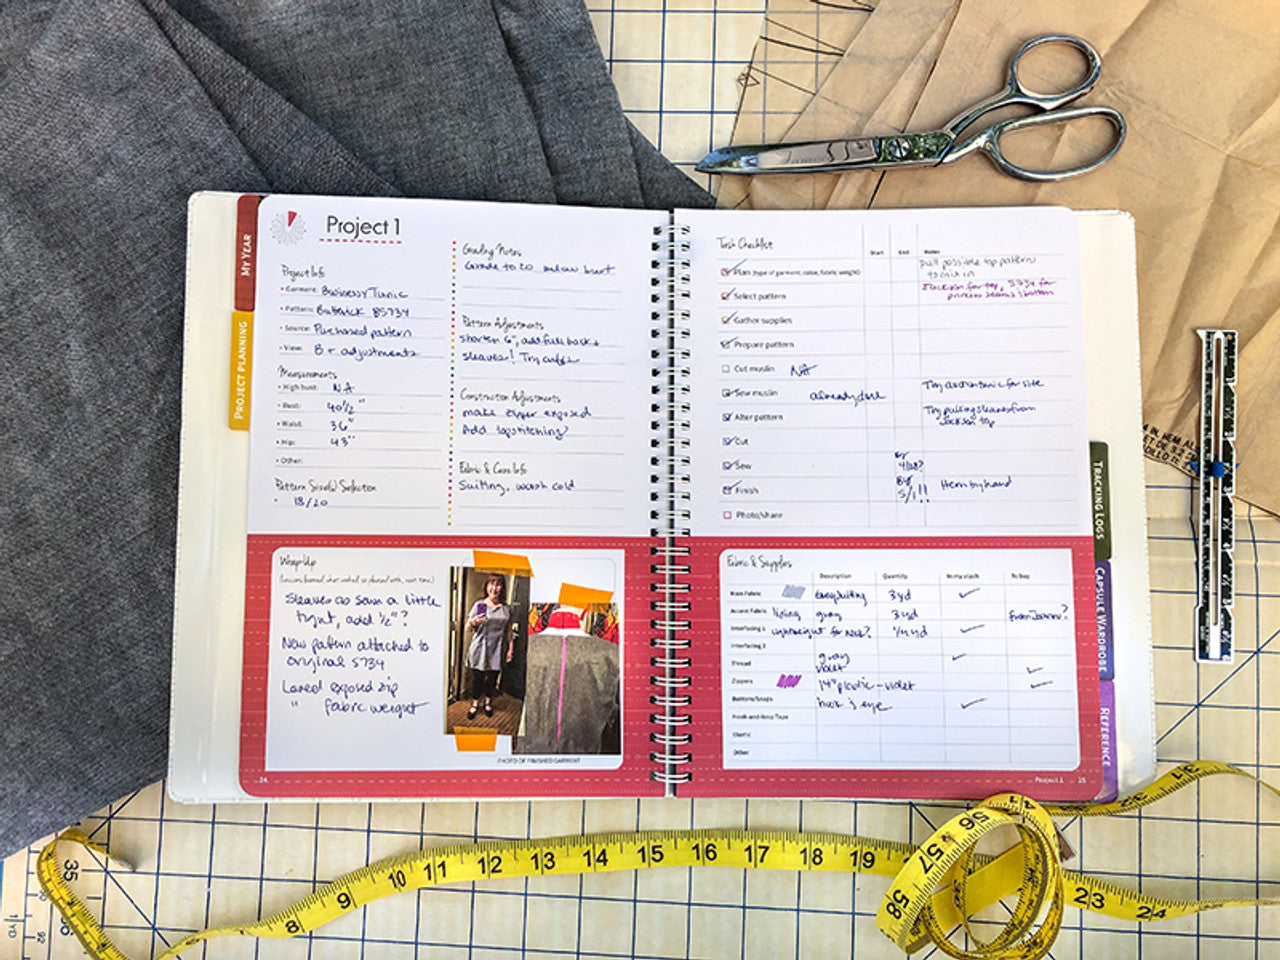 MY YEAR
PROJECT PLANNING
Project 1
Project Info
• Garment: Business Tunic
• Pattern: Butterick B5734
• Source: Purchased pattern
• View: B + adjustments
Measurements
• High bust: NA
• Bust: 40 1/2"
• Waist: 36"
• Hip: 43"
• Other:
Pattern Size(s) Selection
• 18/20
Grading Notes
Grade to 20 below bust
Pattern Adjustments
shorten 6", add full back &
sleeves! Try cuffs
Construction Adjustments
make zipper exposed
Add topstitching?
Fabric & Care Info
Suiting, wash cold
Wrap-Up
Sleeves as sewn a little
tight, add 1/2"?
New pattern attached to
original 5734
Loved exposed zip
" fabric weight
PHOTO OF FINISHED GARMENT
24
Task Checklist
Start End Notes
Plan (type of garment, color, fabric weight) pull possible top pattern
to mix in
Select pattern Jackson for top, 5734 for
princess seams & bottom
Gather supplies
Prepare pattern
Cut muslin NA
Sew muslin already done
Alter pattern Try pulling sleeves from
Jackson top
Cut
Sew by 4/28?
Finish By 5/1!! Hem by hand
Photo/share
Fabric & Supplies
Description Quantity In my stash To buy
Main Fabric gray suiting 3 yd
Accent Fabric lining gray 3 yd from Joann?
Interfacing 1 lightweight for neck? 1/4 yd
Interfacing 2
Thread gray
violet
Zippers 14" plastic - violet
Buttons/Snaps hook & eye
Hook-and-loop Tape
Elastic
Other
Project 1 25
TRACKING LOGS
CAPSULE WARDROBE
REFERENCE
35
8 9 10 11 12 13 14 15 16 17 18 19
58 57 56
41
32 31
23 24
1YD
92